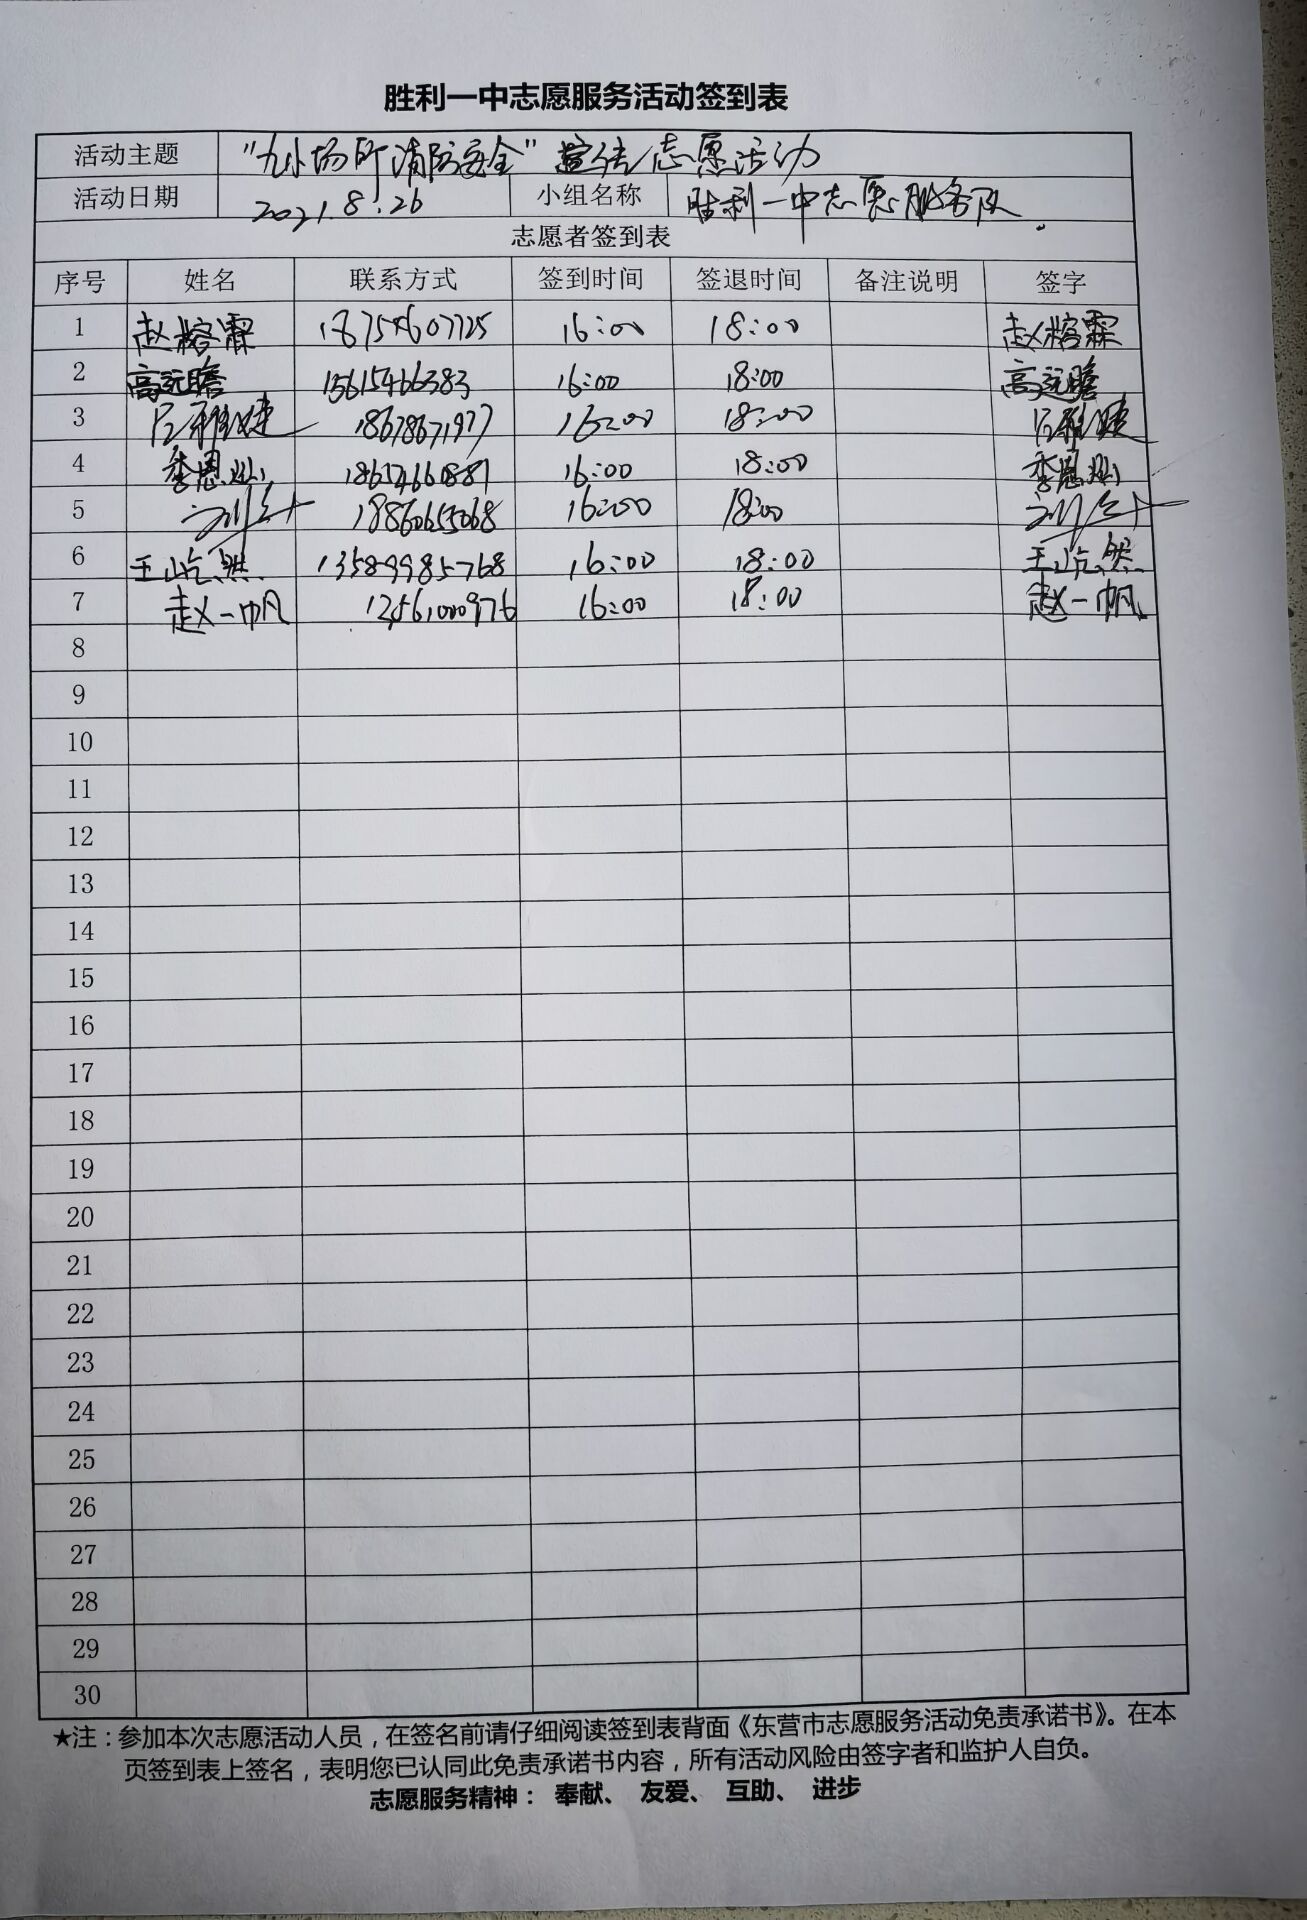 胜利一中志愿服务活动签到表
活动主题 "九小场所消防安全"宣传志愿活动
活动日期 2021.8.26 小组名称 胜利一中志愿服务队.
志愿者签到表
序号 姓名 联系方式 签到时间 签退时间 备注说明 签字
1 赵榕霖 16:00 18:00 赵榕霖
2 高远瞻 15615466383 16:00 18:00 高远瞻
3 18678671977 16:00 18:00
4 季恩灿 18654660887 16:00 18:00 季恩灿
5 16:00 18:00
6 王屹然 13589985768 16:00 18:00 王屹然
7 赵一帆 16:00 18:00 赵一帆
8
9
10
11
12
13
14
15
16
17
18
19
20
21
22
23
24
25
26
27
28
29
30
★注：参加本次志愿活动人员，在签名前请仔细阅读签到表背面《东营市志愿服务活动免责承诺书》。在本
页签到表上签名，表明您已认同此免责承诺书内容，所有活动风险由签字者和监护人自负。
志愿服务精神： 奉献、 友爱、 互助、 进步